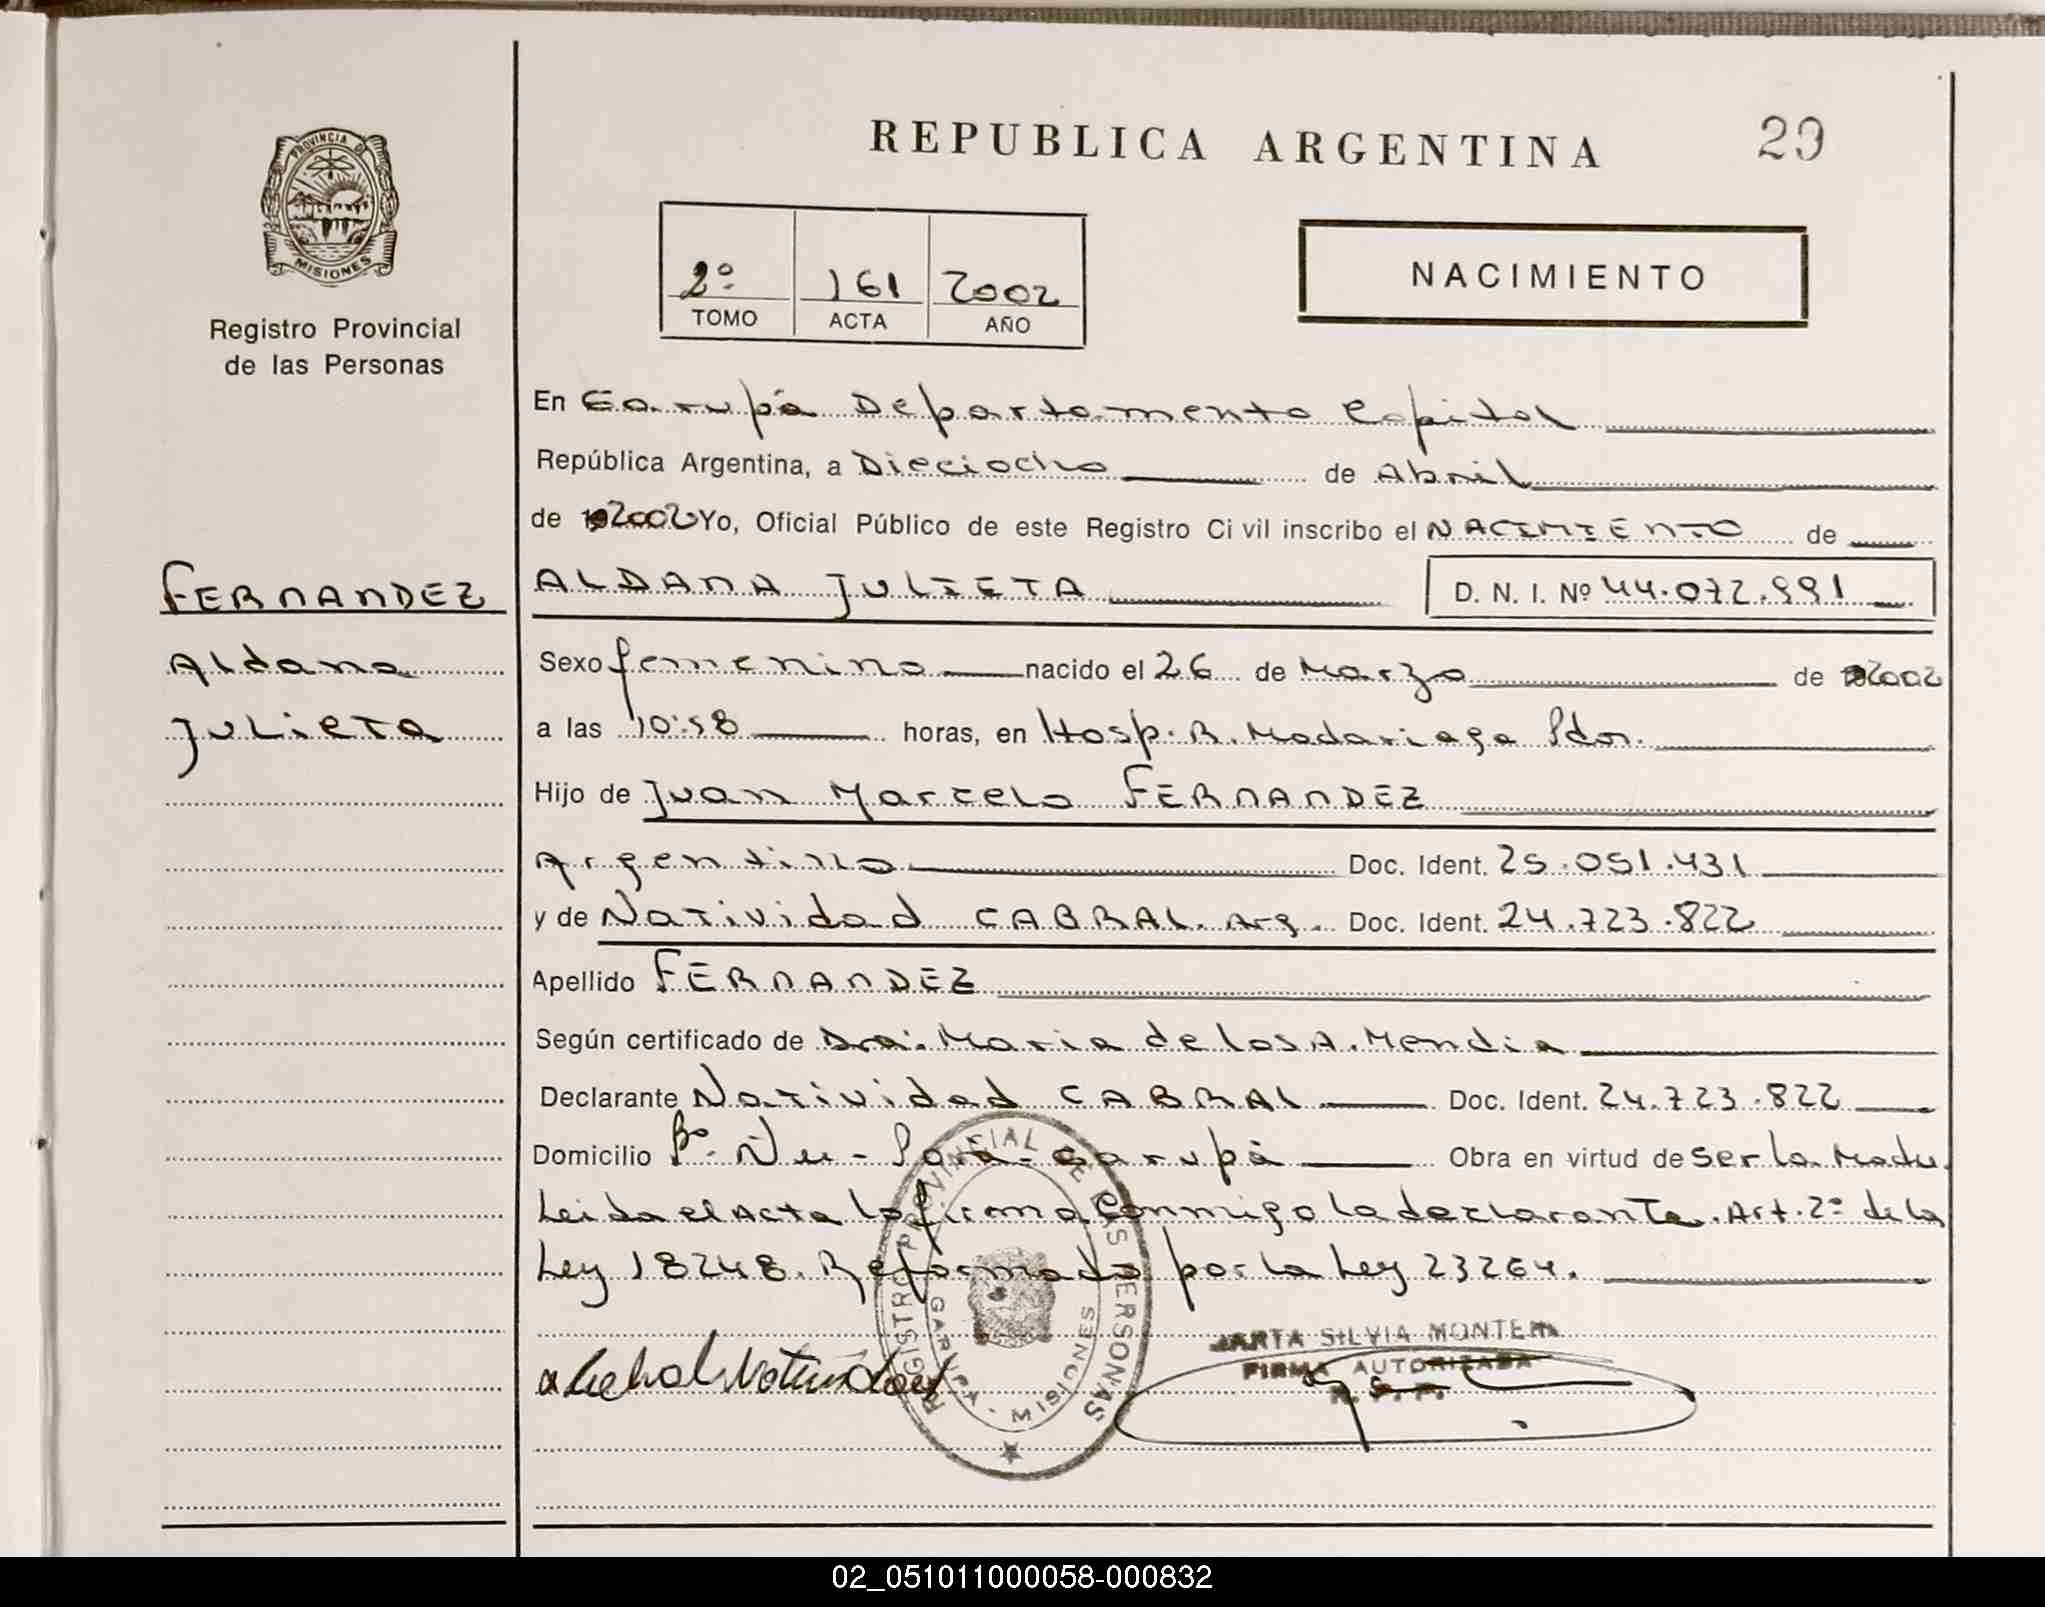 REPUBLICA ARGENTINA
29
PROVINCIA DE
MISIONES
Registro Provincial
de las Personas
2º 161 2002
TOMO ACTA AÑO
NACIMIENTO
En Garupá Departamento Capital
República Argentina, a Dieciocho de Abril
de 2002 Yo, Oficial Público de este Registro Civil inscribo el NACIMIENTO de
FERNANDEZ
Aldana
Julieta
ALDANA JULIETA D. N. I. Nº 44.072.991
Sexo femenino nacido el 26 de Marzo de 2002
a las 10:58 horas, en Hosp. R. Madariaga Pdas.
Hijo de Juan Marcelo FERNANDEZ
Argentino Doc. Ident. 25.051.431
y de Natividad CABRAL Arg. Doc. Ident. 24.723.822
Apellido FERNANDEZ
Según certificado de Dra. Maria de los A. Mendia
Declarante Natividad CABRAL Doc. Ident. 24.723.822
Domicilio Bº Ñu-Porá-Garupá Obra en virtud de ser la Madre
Leida el Acta la firma Conmigo la declarante. Art. 2º de la
Ley 18248. Reformado por la Ley 23264.
REGISTRO PROVINCIAL DE LAS PERSONAS
GARUPA - MISIONES
SILVIA
FIRMA AUTORIZADA
R. P. P.
Cabral Natividad
02_051011000058-000832